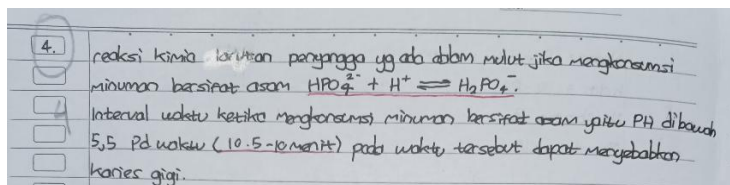 4.
reaksi kimia larutan penyangga yg ada dalam mulut jika mengkonsumsi
minuman bersifat asam HPO₄²⁻ + H⁺ ⇌ H₂PO₄⁻.
4
Interval waktu ketika mengkonsumsi minuman bersifat asam yaitu PH dibawah
5,5 Pd waktu (10.5-10 menit) pada waktu tersebut dapat menyebabkan
karies gigi.